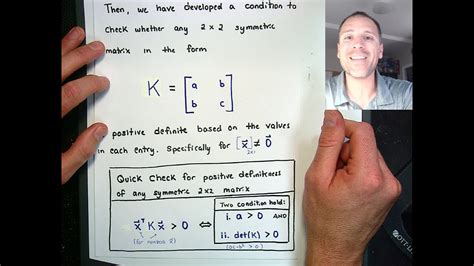 Then, we have developed a condition to
check whether any 2×2 symmetric
matrix in the form
K = [a b
b c]
positive definite based on the values
in each entry. Specifically for [x⃗]₂ₓ₁ ≠ 0⃗
Quick Check for positive definiteness
of any symmetric 2x2 matrix
x⃗ᵀKx⃗ > 0 ⇔
(for nonzero x⃗)
Two condition hold:
i. a > 0 AND
ii. det(K) > 0
(ac-b² > 0)